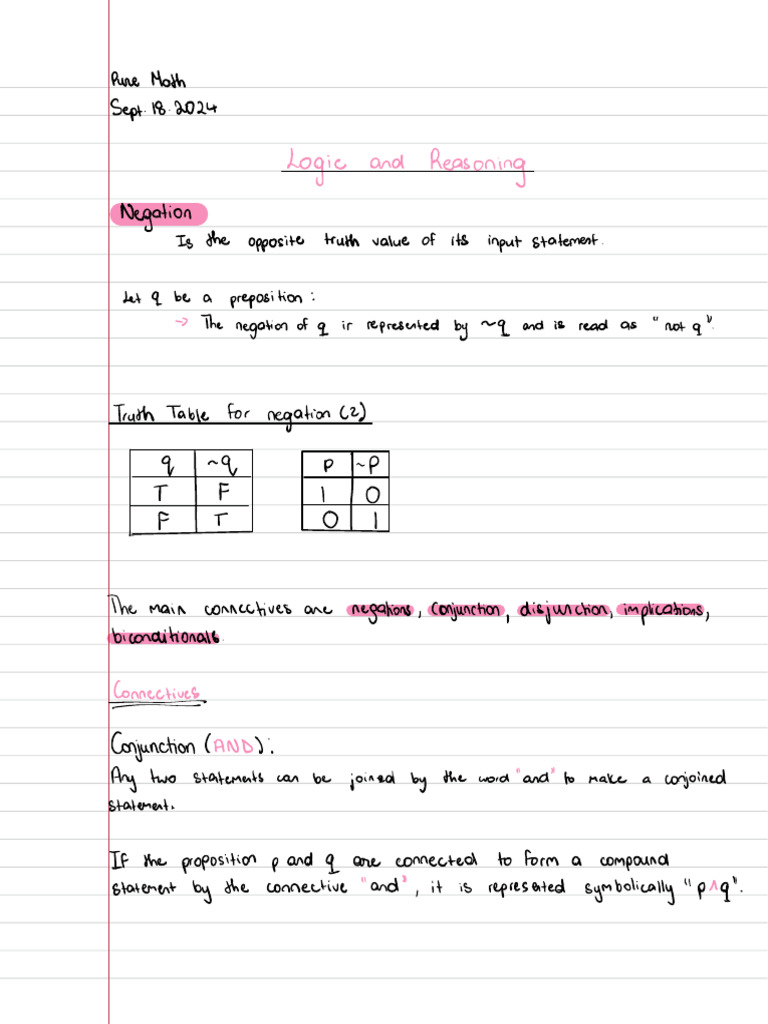 Pure Math
Sept. 18. 2024
Logic and Reasoning
Negation
Is the opposite truth value of its input statement.
Let q be a preposition:
→ The negation of q is represented by ~q and is read as "not q".
Truth Table for negation (2)
q ~q p ~p
T F 1 0
F T 0 1
The main connectives are negations, conjunction, disjunction, implications,
biconditionals.
Connectives
Conjunction (AND):
Any two statements can be joined by the word "and" to make a conjoined
statement.
If the proposition p and q are connected to form a compound
statement by the connective "and", it is represented symbolically "p∧q".